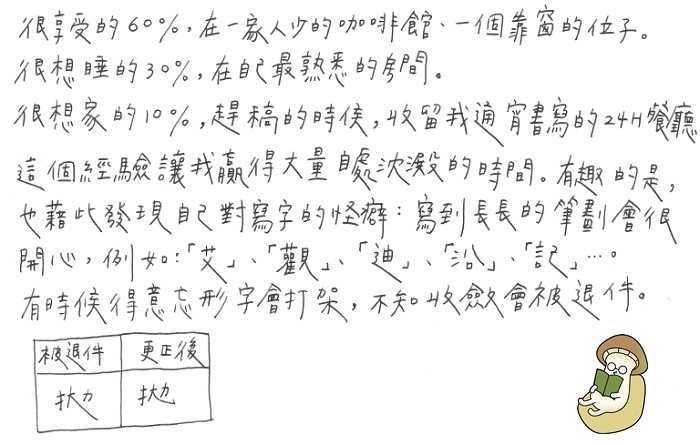 很享受的60%，在一家人少的咖啡館、一個靠窗的位子。
很想睡的30%，在自己最熟悉的房間。
很想家的10%，趕稿的時候，收留我通宵書寫的24H餐廳
這個經驗讓我贏得大量自處沈澱的時間。有趣的是，
也藉此發現自己對寫字的怪癖：寫到長長的筆劃會很
開心，例如：「艾」、「觀」、「迪」、「沿」、「記」…。
有時候得意忘形字會打架，不知收斂會被退件。
被退件 更正後
拋 拋